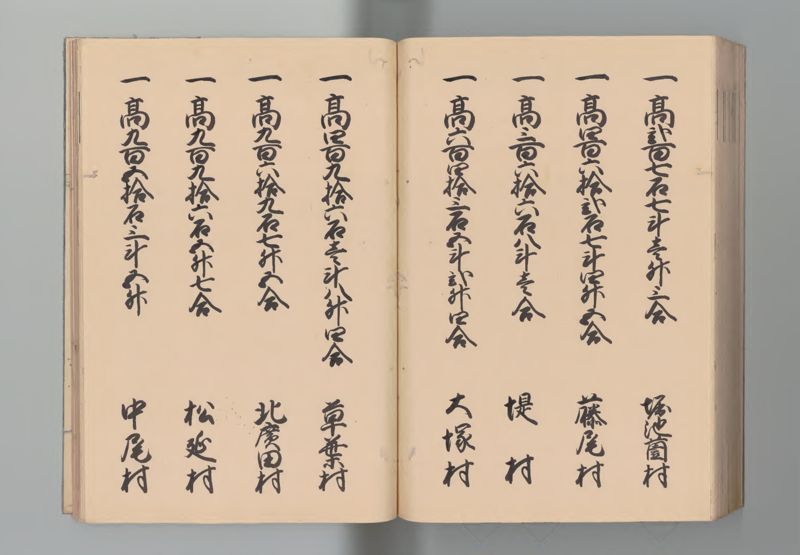 一 高弐百七石七斗壱升三合 堀池薗村
一 高四百六拾弐石七斗四升五合 藤尾村
一 高三百六拾六石八斗壱合 堤村
一 高六百四拾三石五斗弐升四合 大塚村
一 高四百九拾六石壱斗八升四合 草葉村
一 高九百六拾九石七升五合 北廣田村
一 高九百九拾六石五升七合 松延村
一 高九百五拾石三斗五升 中尾村